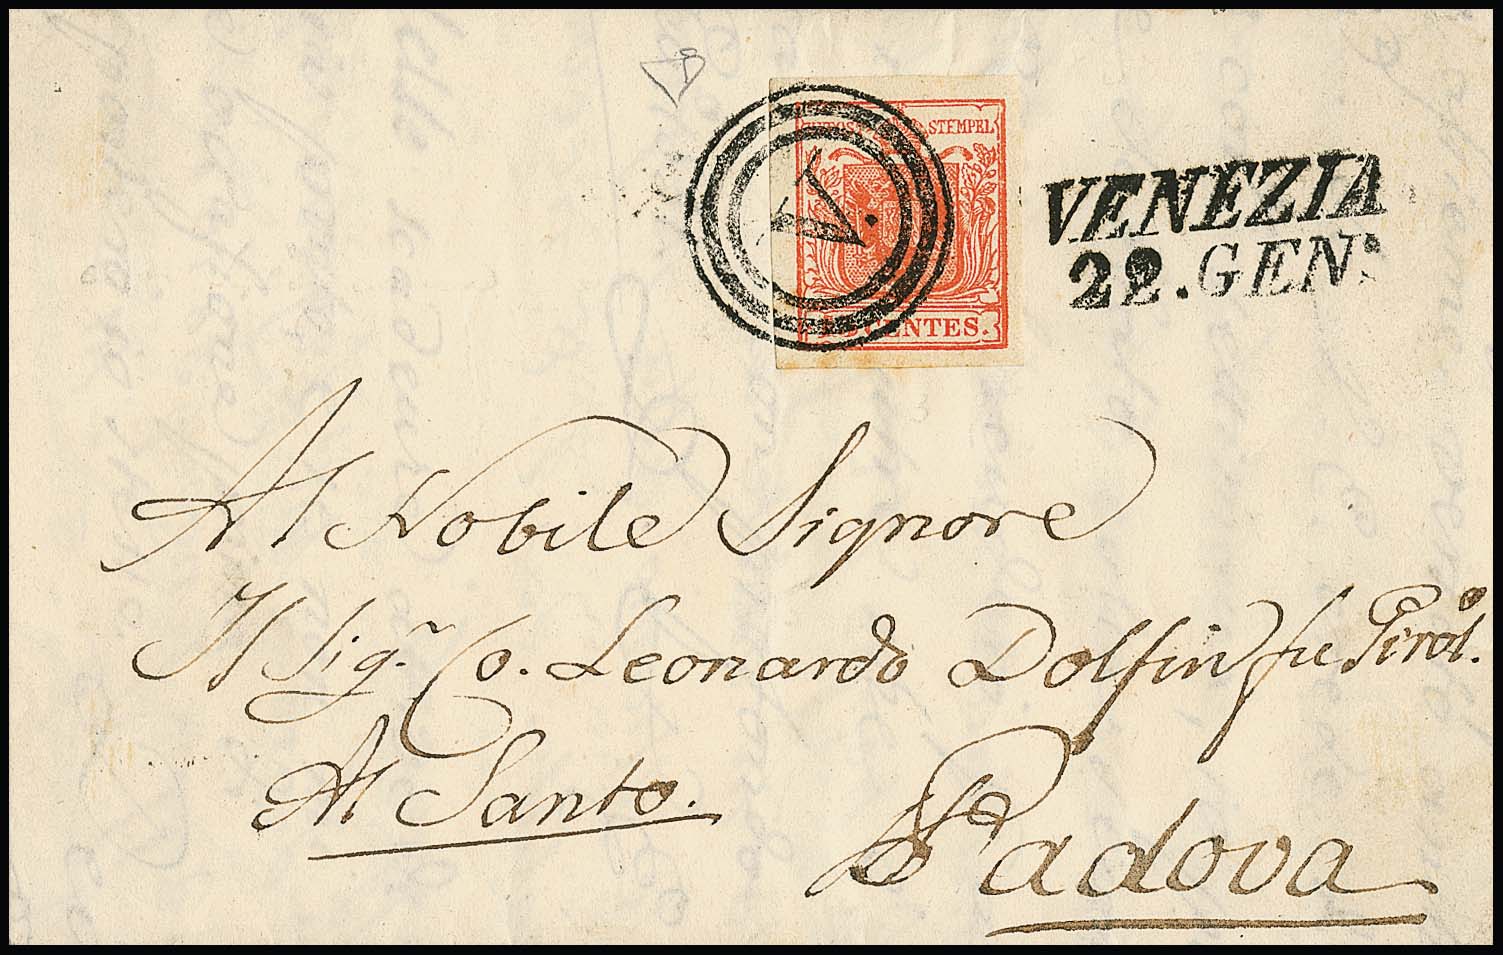 STEMPEL
V.
CENTES.
VENEZIA
22.GEN:
Al Nobile Signore
Il Sig.r Co. Leonardo Dolfin fu Girol.o
Al Santo.
Padova